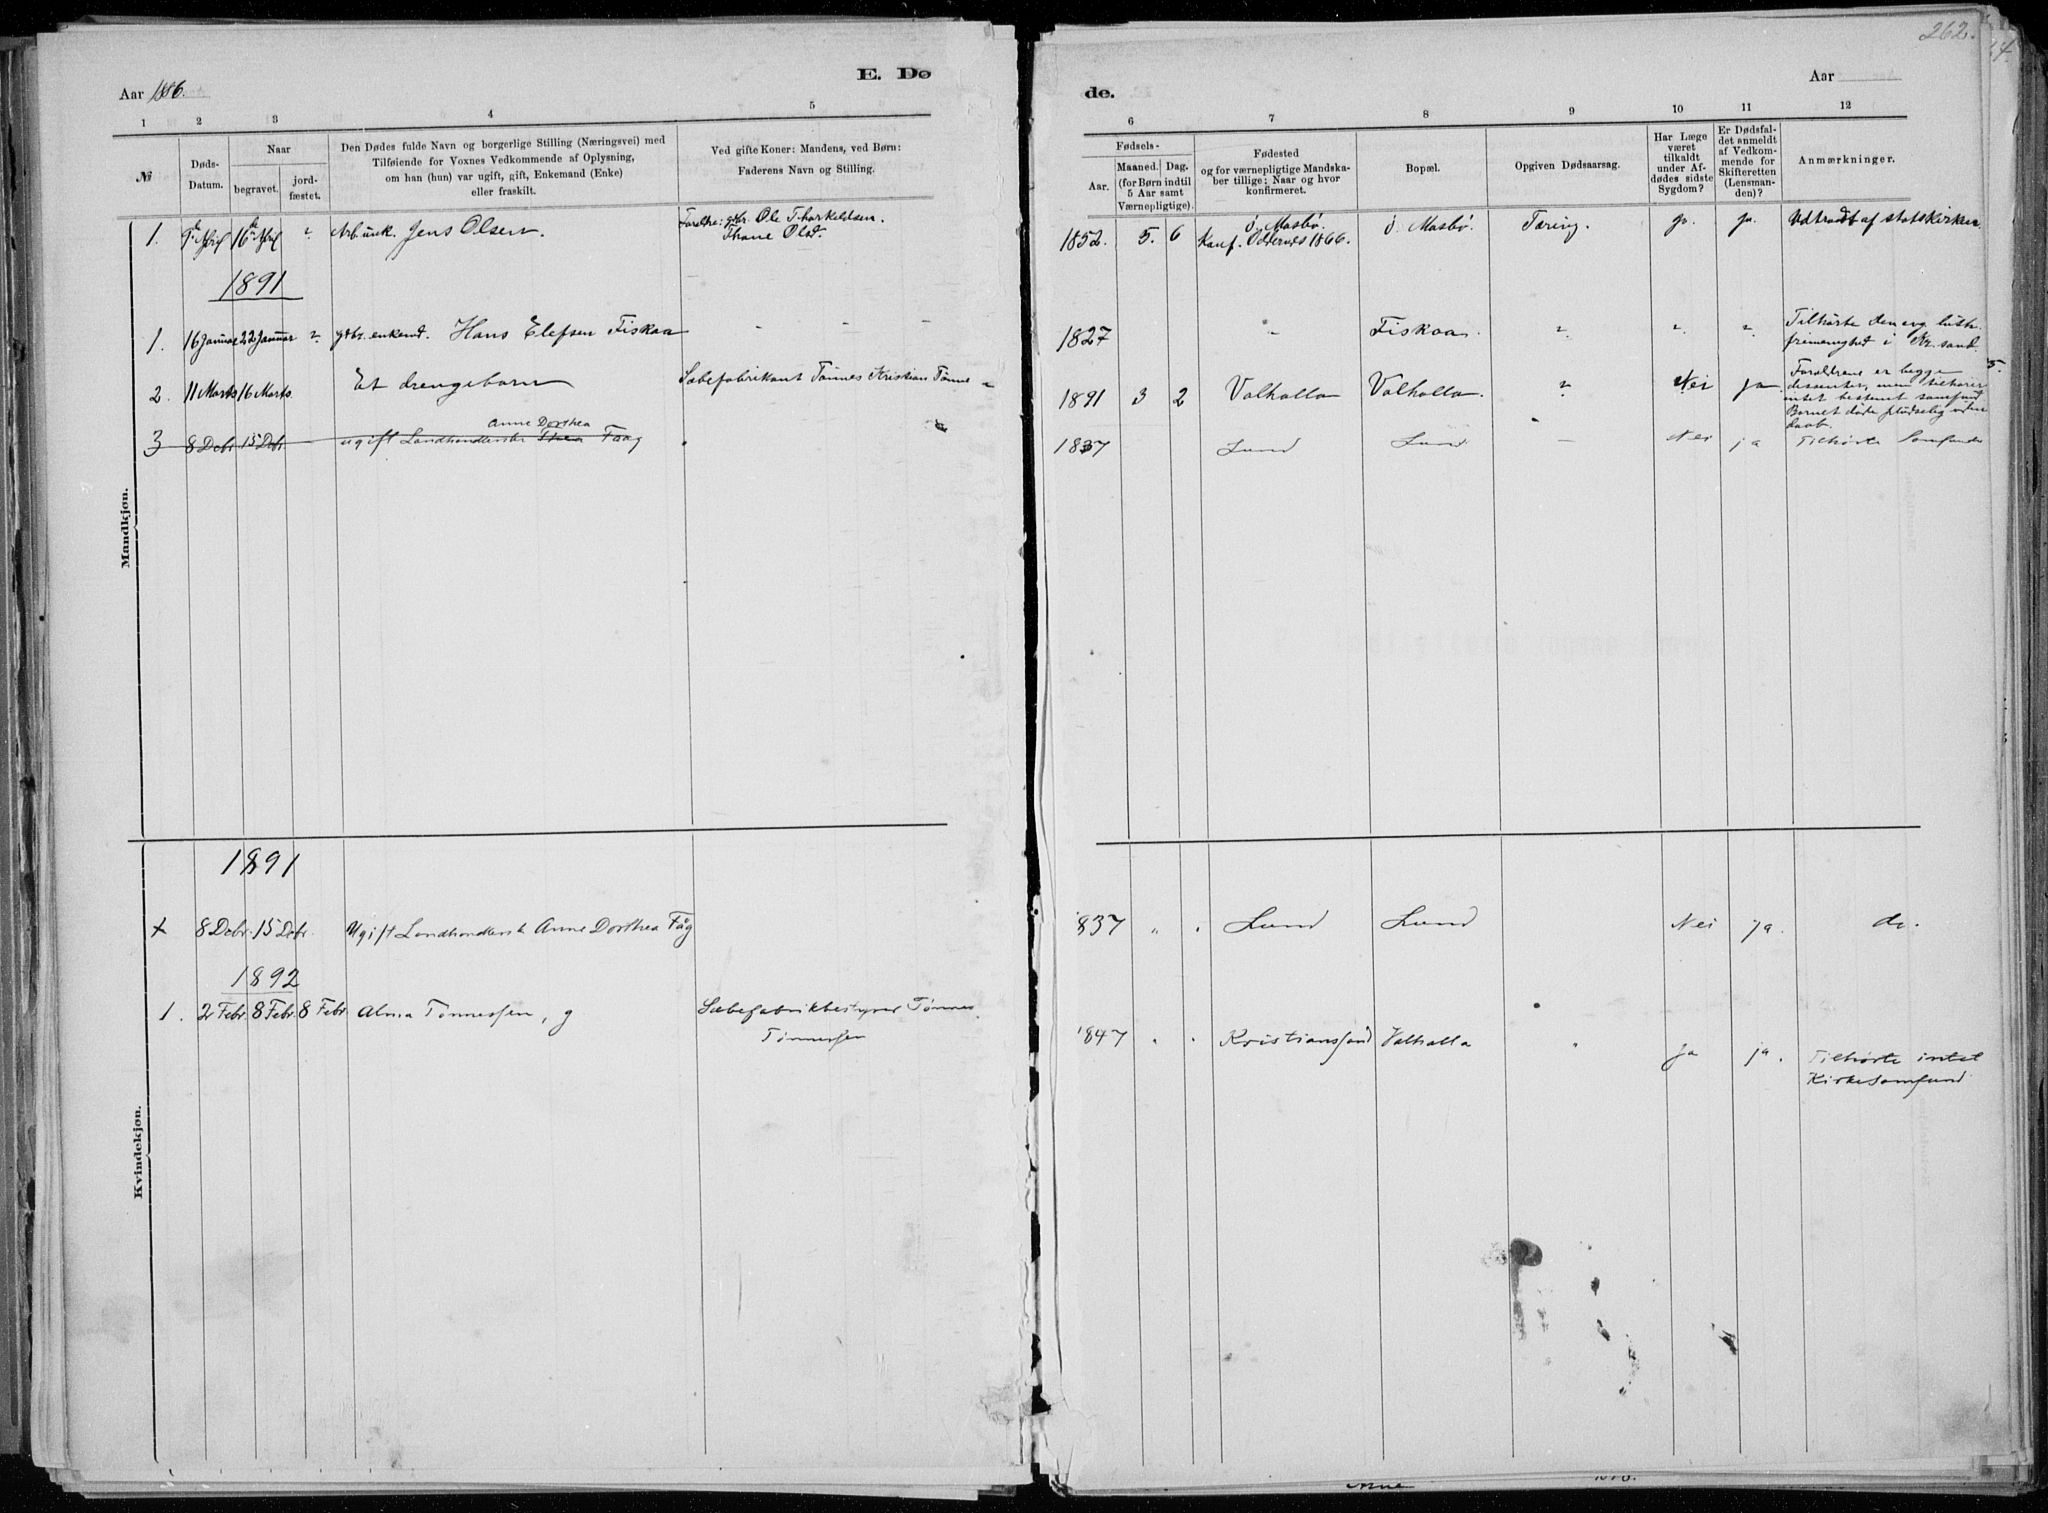 262.
E. Dø
de.
Aar 1886.
Aar
1 2 3 4 5
6 7 8 9 10 11 12
№
Døds-
Datum.
Naar
begravet.
jord-
fæstet.
Den Dødes fulde Navn og borgerlige Stilling (Næringsvei) med
Tilføiende for Voxnes Vedkommende af Oplysning,
om han (hun) var ugift, gift, Enkemand (Enke)
eller fraskilt.
Ved gifte Koner: Mandens, ved Børn:
Faderens Navn og Stilling.
Fødsels-
Aar.
Maaned. Dag.
(for Børn indtil
5 Aar samt
Værnepligtige).
Fødested
og for værnepligtige Mandska-
ber tillige: Naar og hvor
konfirmeret.
Bopæl.
Opgiven Dødsaarsag.
Har Læge
været
tilkaldt
under Af-
dødes sidste
Sygdom?
Er Dødsfal-
det anmeldt
af Vedkom-
mende for
Skifteretten
(Lensman-
den)?
Anmærkninger.
Mandkjøn.
1. 9de April 16de April " Arb. unk. Jens Olsen. Forældre: gbr. Ole Thorkeldsen.
Thone Olsd.
1852. 5. 6 ø. Mosbø. ø. Mosbø. Tæring. ja. ja. Udtraadt af statskirken.
Konf. Oddernes 1866.
1891
1. 16 Januar 22 Januar " gdbr. enkemd. Hans Elefsen Fiskaa - - -
1827 " Fiskaa. " " " Tilhørte den evg. luth.
frimenighed i Kr.sand.
2. 11 Marts 16 Marts. Et drengebarn Sæbefabrikant Tønnes Kristian Tønne
1891 3 2 Valhalla Valhalla. " Nei ja Forældrene er begge
dissenter, men tilhører
intet bestemt samfund
Barnet døde pludselig uden
daab.
Anne Dorthea
3 8 Decbr 15 Decbr ugift Landhandlerske Thea Faag
1837 Lund Lund — Nei ja Tilhørte
Kvindekjøn.
1891
+ 8 Decbr. 15 Decbr. Ugift Landhandlersk Anne Dorthea Fåg
1837 " " Lund Lund Nei ja. do.
1892
1. 2 Febr. 8 Febr. 8 Febr Alma Tønnessen, g Sæbefabrikbestyrer Tønnes
Tønnessen
1847 " " Kristianssand Valhalla " ja ja. Tilhørte intet
Kirkesamfund